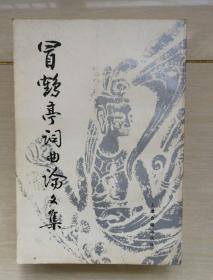 冒鹤亭词曲论文集